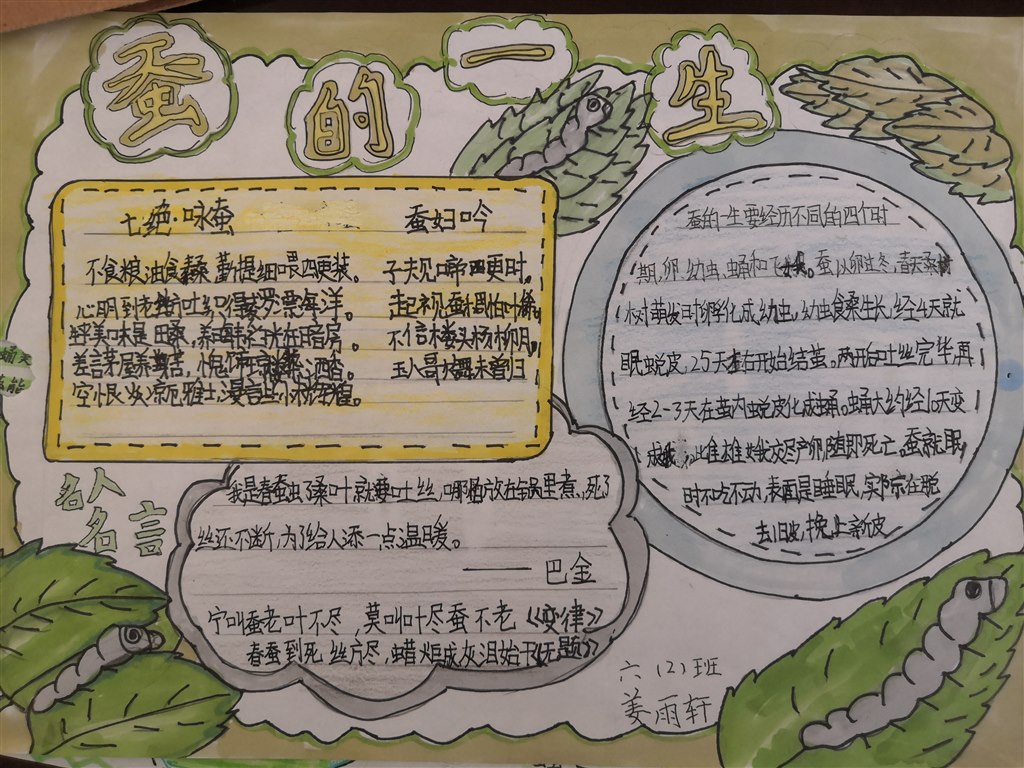 蚕的一生
七绝·咏蚕
不食粮油食桑 勤提细喂四更装。
心明到老 吐织得 漂海洋。
鲜美味是田桑,养 在暗房
养言茅屋养 苦,
空恨 雅士漫言
蚕妇吟
子夫见啼四更时,
起视蚕稠怕叶稀。
不信楼头杨柳月,
玉人哥舞未曾归
蚕的一生要经历不同的四个时
期,卵,幼虫,蛹和飞蛾。蚕以卵过冬,春天桑
树黄发时孵化成幼虫,幼虫食桑生长,经4天就
眠蜕皮,25天左右开始结茧。两天后吐丝完毕,再
经2-3天在茧内蜕皮化成蛹。蛹大约经10天变
成蛾,雌雄蛾交尽产卵随即死亡,蚕就眠
时不吃不动,表面是睡眠,实际在脱
去旧皮,换上新皮
名人
名言
我是春蚕,吃了桑叶就要吐丝,哪怕放在锅里煮,死了
丝还不断,为了给人添一点温暖。
——巴金
宁叫蚕老叶不尽,莫叫叶尽蚕不老《变律》
春蚕到死丝方尽,蜡炬成灰泪始干《无题》
六(2)班
姜雨轩